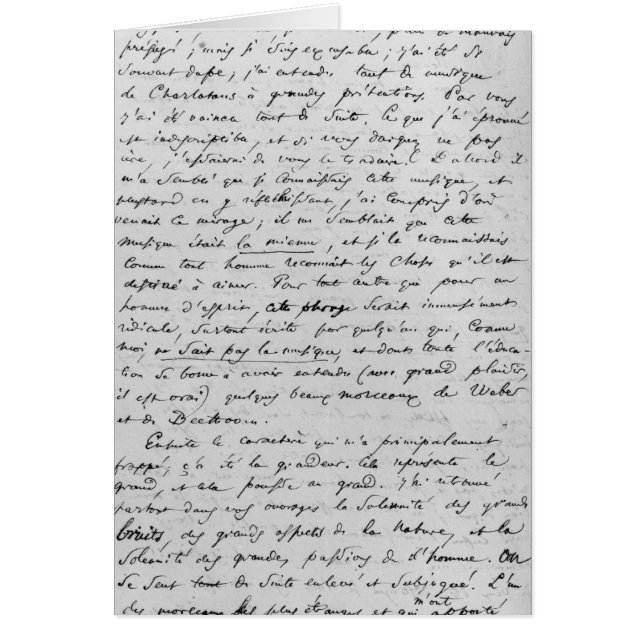 plein de mauvais
préjugés ; mais si suis excusable ; j'ai été si
souvent dupe ; j'ai entendu tant de musique
de Charlatans à grandes prétentions. Par vous
j'ai été vaincu tout de suite. Ce que j'ai éprouvé
est indescriptible, et si vous daignez ne pas
rire, j'essaierai de vous le traduire. D'abord il
m'a semblé que je connaissais cette musique, et
plus tard en y réfléchissant, j'ai compris d'où
venait ce mirage ; il me semblait que cette
musique était la mienne, et je la reconnaissais
comme tout homme reconnaît les choses qu'il est
destiné à aimer. Pour tout autre que pour un
homme d'esprit, cette phrase serait immensément
ridicule, surtout écrite par quelqu'un qui, comme
moi, ne sait pas la musique, et dont toute l'éduca-
tion se borne à avoir entendu (avec grand plaisir,
il est vrai) quelques beaux morceaux de Weber
et de Beethoven.
Ensuite le caractère qui m'a principalement
frappé, ç'a été la grandeur. Cela représente le
grand, et cela pousse au grand. J'ai retrouvé
partout dans vos ouvrages la solennité des grands
bruits, des grands aspects de la Nature, et la
solennité des grandes passions de l'homme. On
se sent tout de suite enlevé et subjugué. L'un
des morceaux les plus étranges et qui m'ont apporté